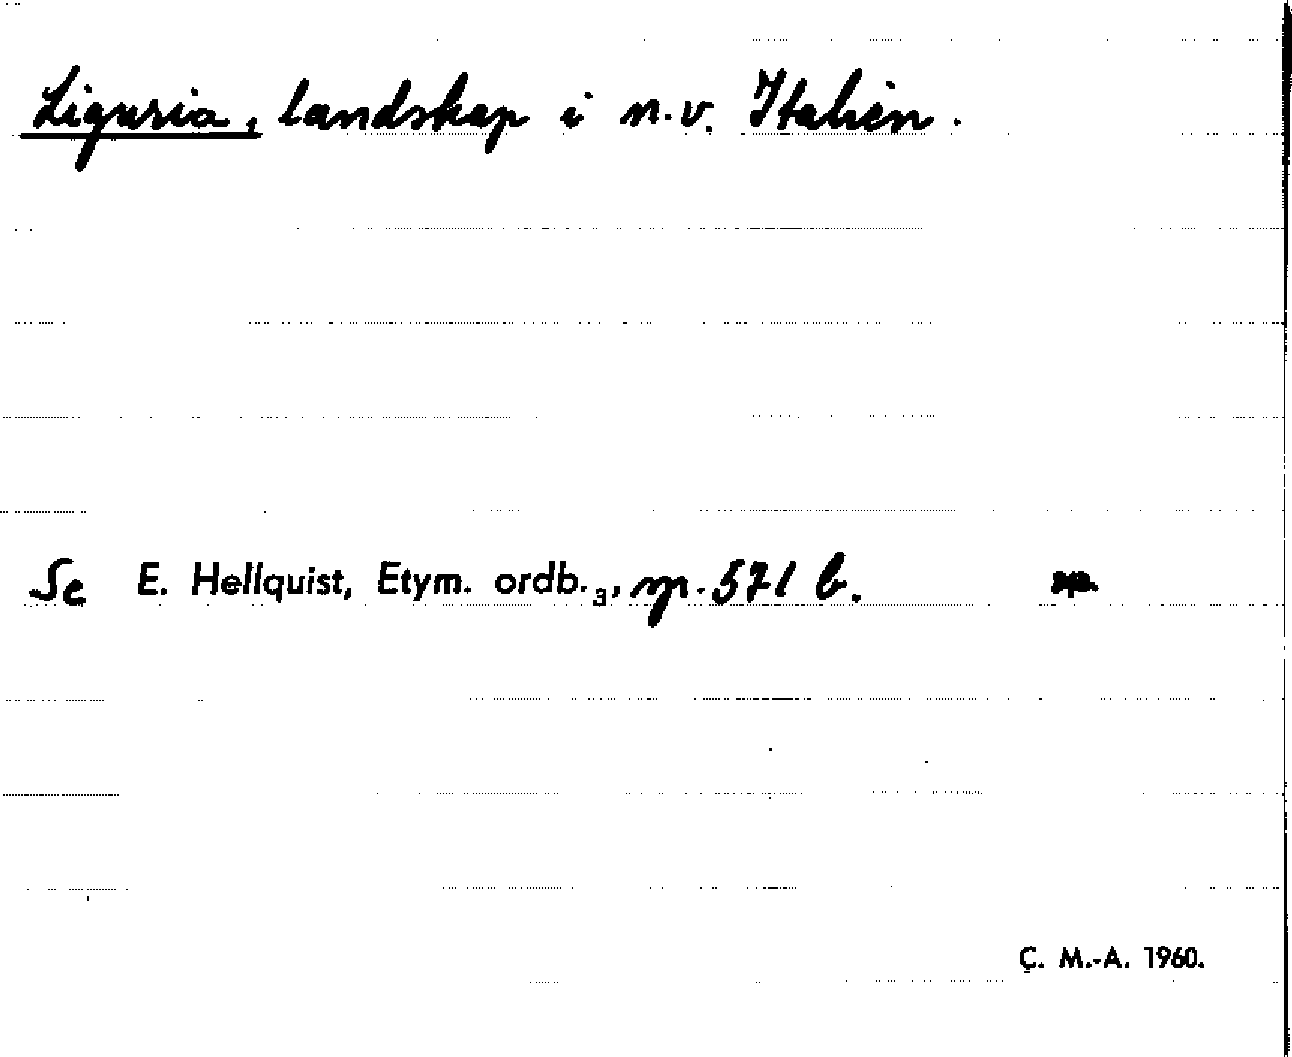 Liguria, landskap i n.v. Italien.
Se E. Hellquist, Etym. ordb.₃, sp. 571 b.
C. M.-A. 1960.